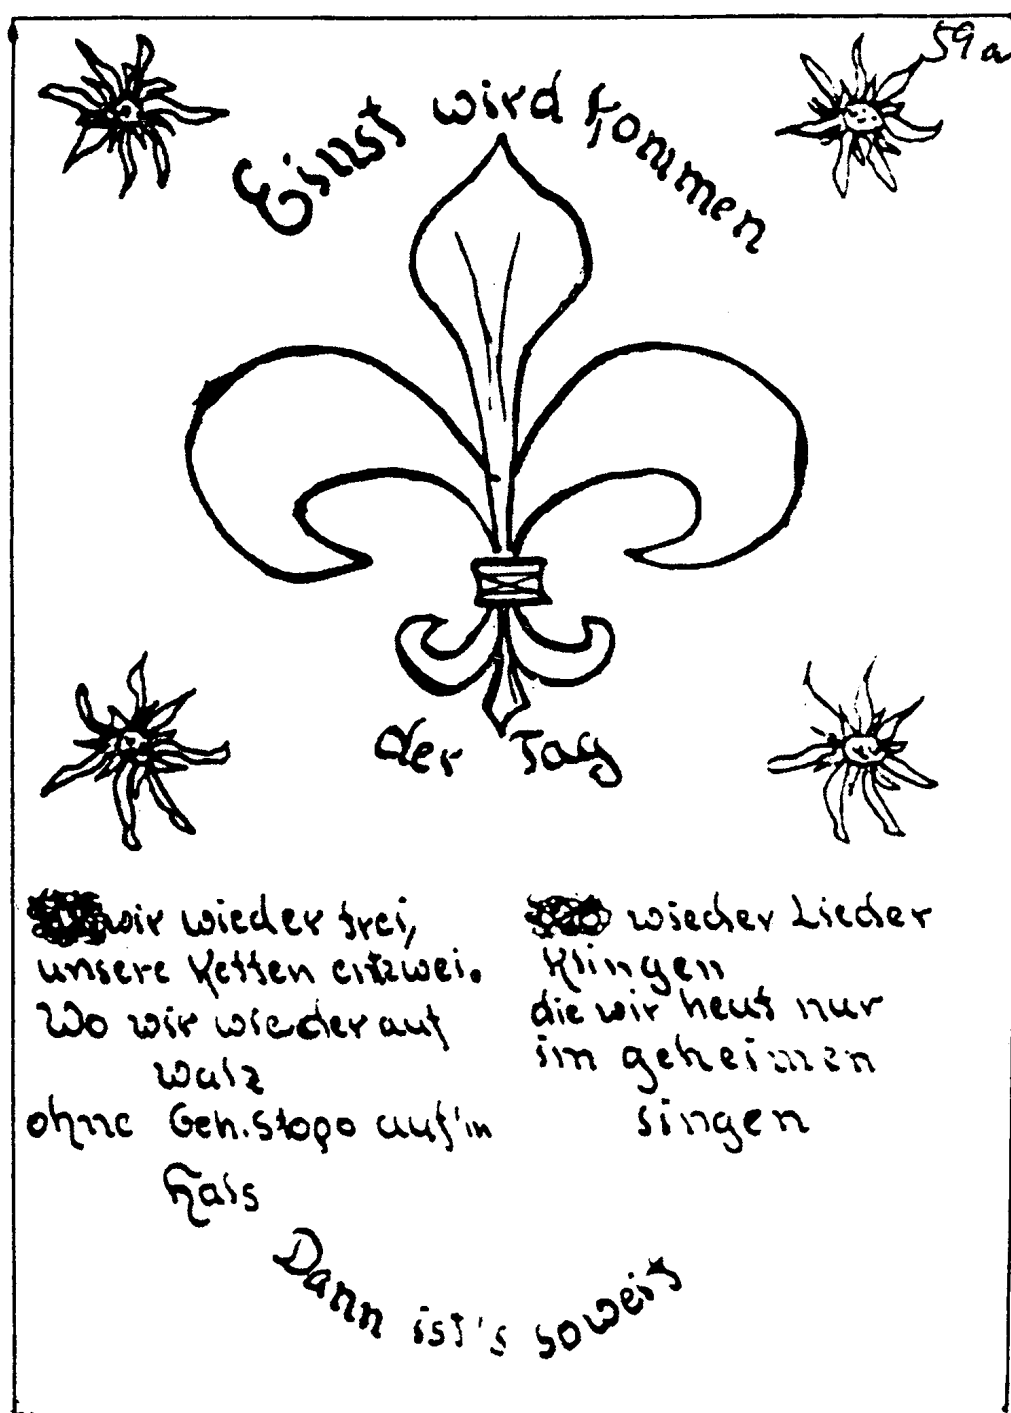 59a
Einst wird kommen
der Tag
wir wieder frei,
unsere Ketten entzwei.
Wo wir wieder auf
Walz
ohne Geh.Stapo auf'm
Hals
wieder Lieder
klingen
die wir heut nur
im geheimen
singen
Dann ist's soweit